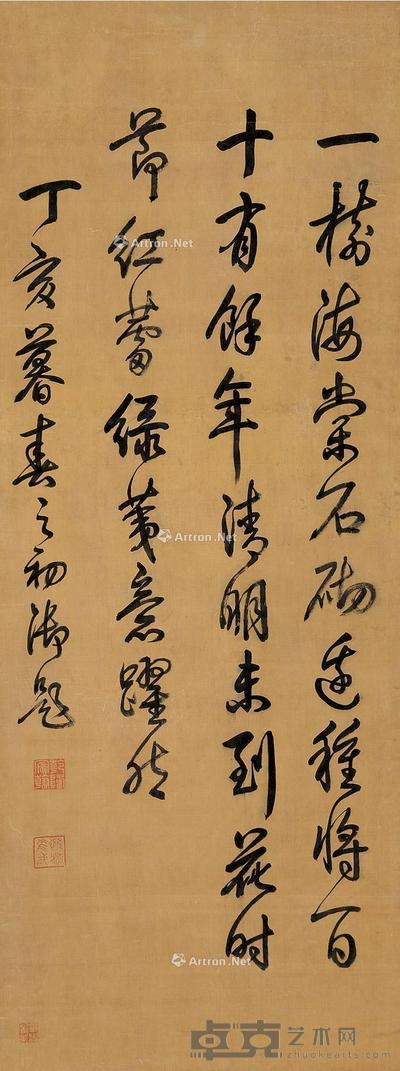 一樹海棠石砌邊種將百
十有餘年清明未到花時
節紅蕾綠荑意躍然
丁亥暮春之初御題
Artron.Net
Artron.Net
Artron.Net
Artron.Net
卓克艺术网
zhuokearts.com